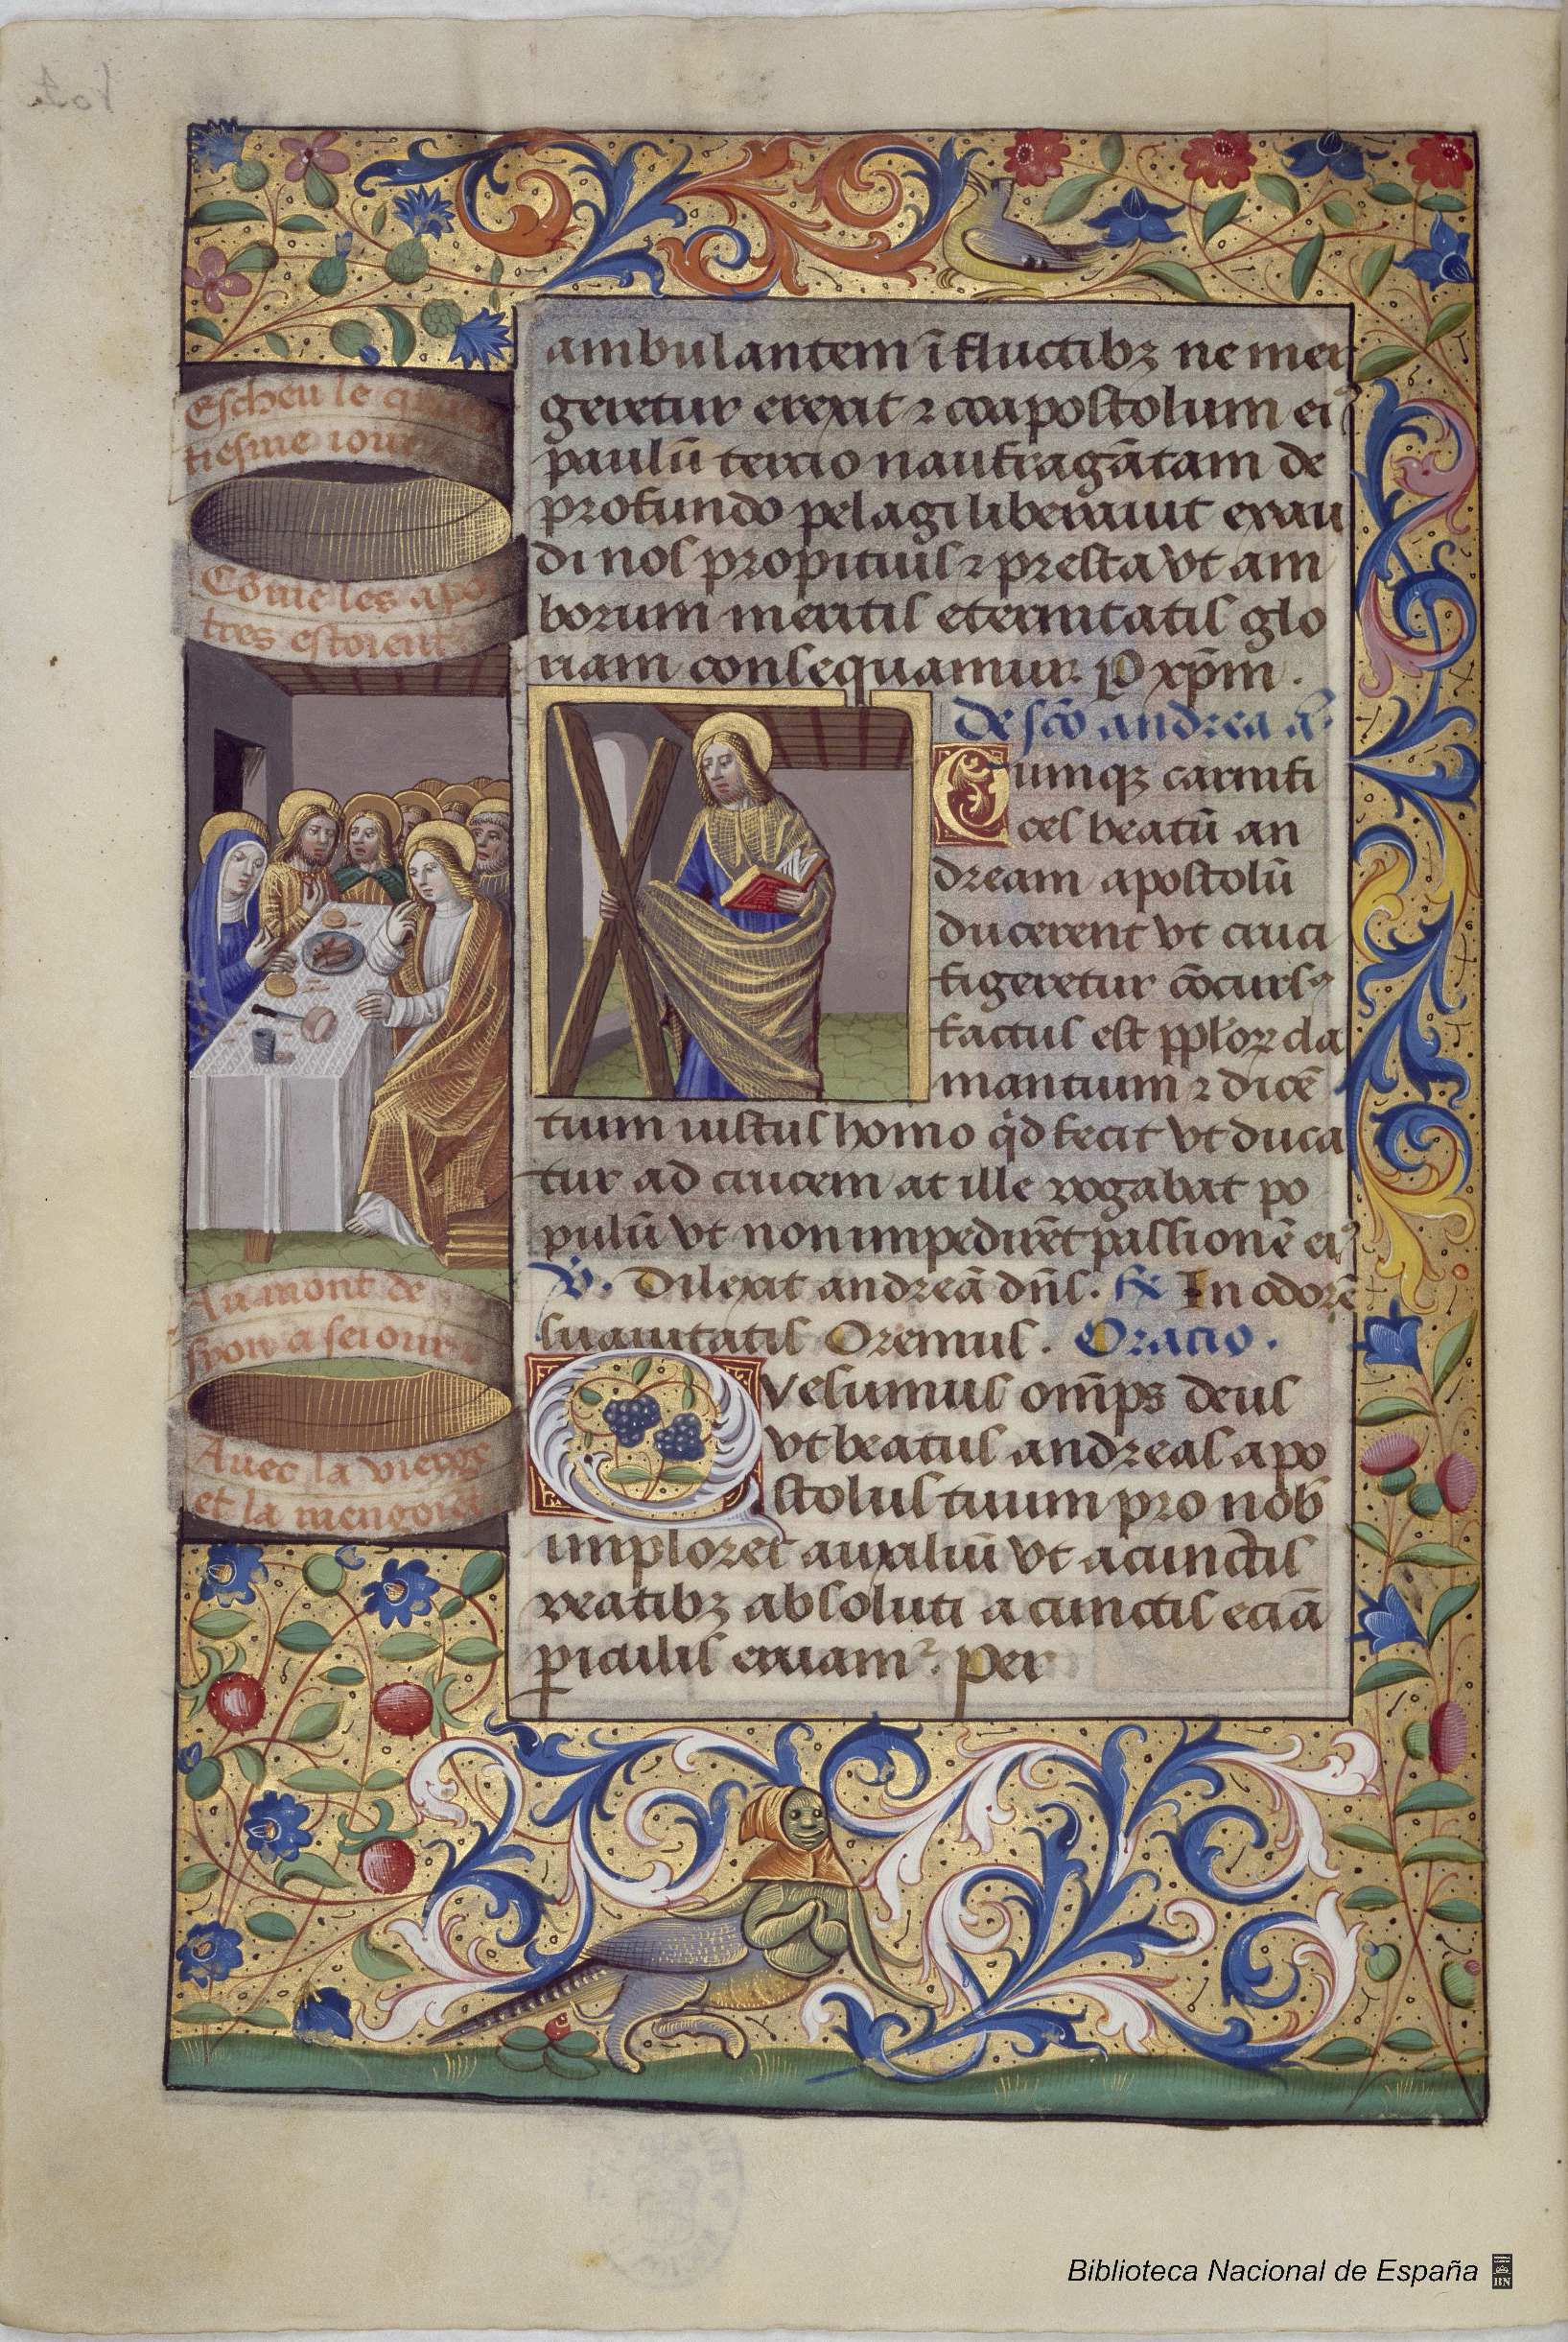 Escheu le
tiesme iour
Cōme les apo
tres estoient
Au mont de
syon a seiour
Auec la vierge
et la mengoiēt
ambulantem ī fluctibꝫ ne mer
geretur erexit ⁊ coapostolum eiꝰ
paulū tercio naufragātam de
profundo pelagi liberauit exau
di nos propitius ⁊ presta vt am
borum meritis eternitatis glo
riam consequamur. P xp̄m.
De scō andrea a
Cumqꝫ carnifi
ces beatū an
dream apostolū
ducerent vt cruci
figeretur cōcursꝰ
factus est pplorꝝ cla
mantium ⁊ dicē
tium iustus homo qd fecit vt duca
tur ad crucem at ille rogabat po
pulū vt non impedirēt passionē eiꝰ
℣. Dilexit andreā dn̄s. ℟ In odorē
suauitatis Oremus. Oracio.
Quesumus om̄ps deus
vt beatus andreas apo
stolus tuum pro nob
imploret auxiliū vt a cunctis
reatibꝫ absoluti a cunctis eciā
ꝑiculis eruamᷣ. Per
Biblioteca Nacional de España
BN